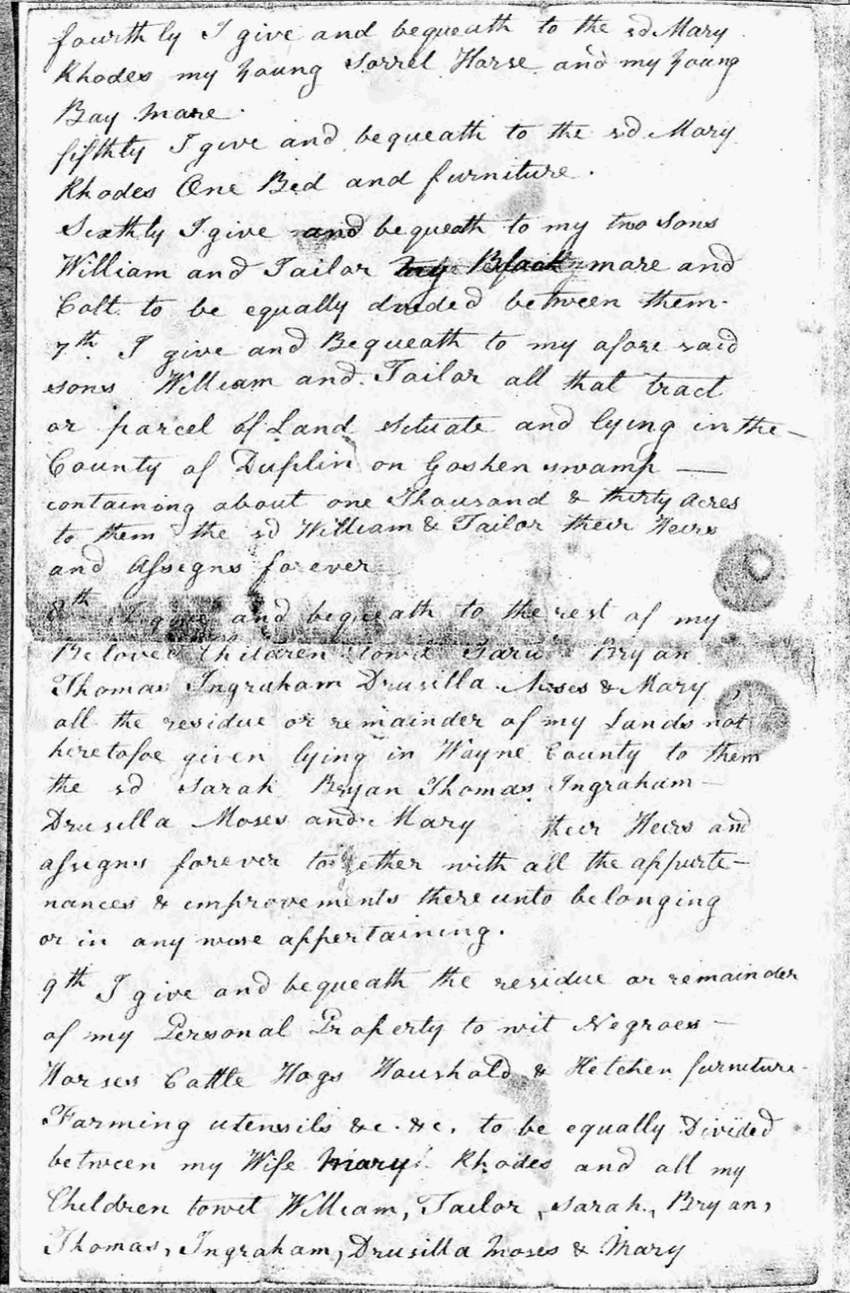 fourthly I give and bequeath to the sd Mary
Rhodes my young Sorrel Horse and my young
Bay mare.
fifthly I give and bequeath to the sd Mary
Rhodes One Bed and furniture.
Sixthly I give and bequeath to my two Sons
William and Tailor my Black mare and
Colt to be equally divided between them.
7th I give and Bequeath to my afore said
sons William and Tailor all that tract
or parcel of Land situate and lying in the
County of Duplin on Goshen swamp —
containing about one Thousand & thirty Acres
to them the sd William & Tailor their Heirs
and Assigns forever
8th I give and bequeath to the rest of my
Beloved Children towit Sarah Bryan
Thomas Ingraham Drusilla Moses & Mary,
all the residue or remainder of my Lands not
heretofoe given lying in Wayne County to them
the sd Sarah Bryan Thomas Ingraham —
Drusilla Moses and Mary their Heirs and
assigns forever together with all the appurte—
nances & improvements thereunto belonging
or in any wise appertaining.
9th I give and bequeath the residue or remainder
of my Personal Property to wit Negroes —
Horses Cattle Hogs Houshold & Ketchen furniture
Farming utensils &c. &c. to be equally Divided
between my Wife Mary Rhodes and all my
Children towit William, Tailor, Sarah, Bryan,
Thomas, Ingraham, Drusilla Moses & Mary